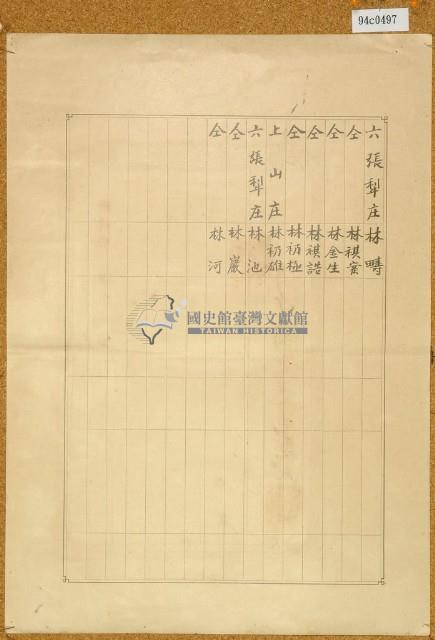 94c0497
六張犁庄 林疇
仝 林祺蜜
仝 林金生
仝 林祺誥
仝 林礽極
上山庄 林礽雄
六張犁庄 林池
仝 林巖
仝 林河
國史館臺灣文獻館
TAIWAN HISTORICA